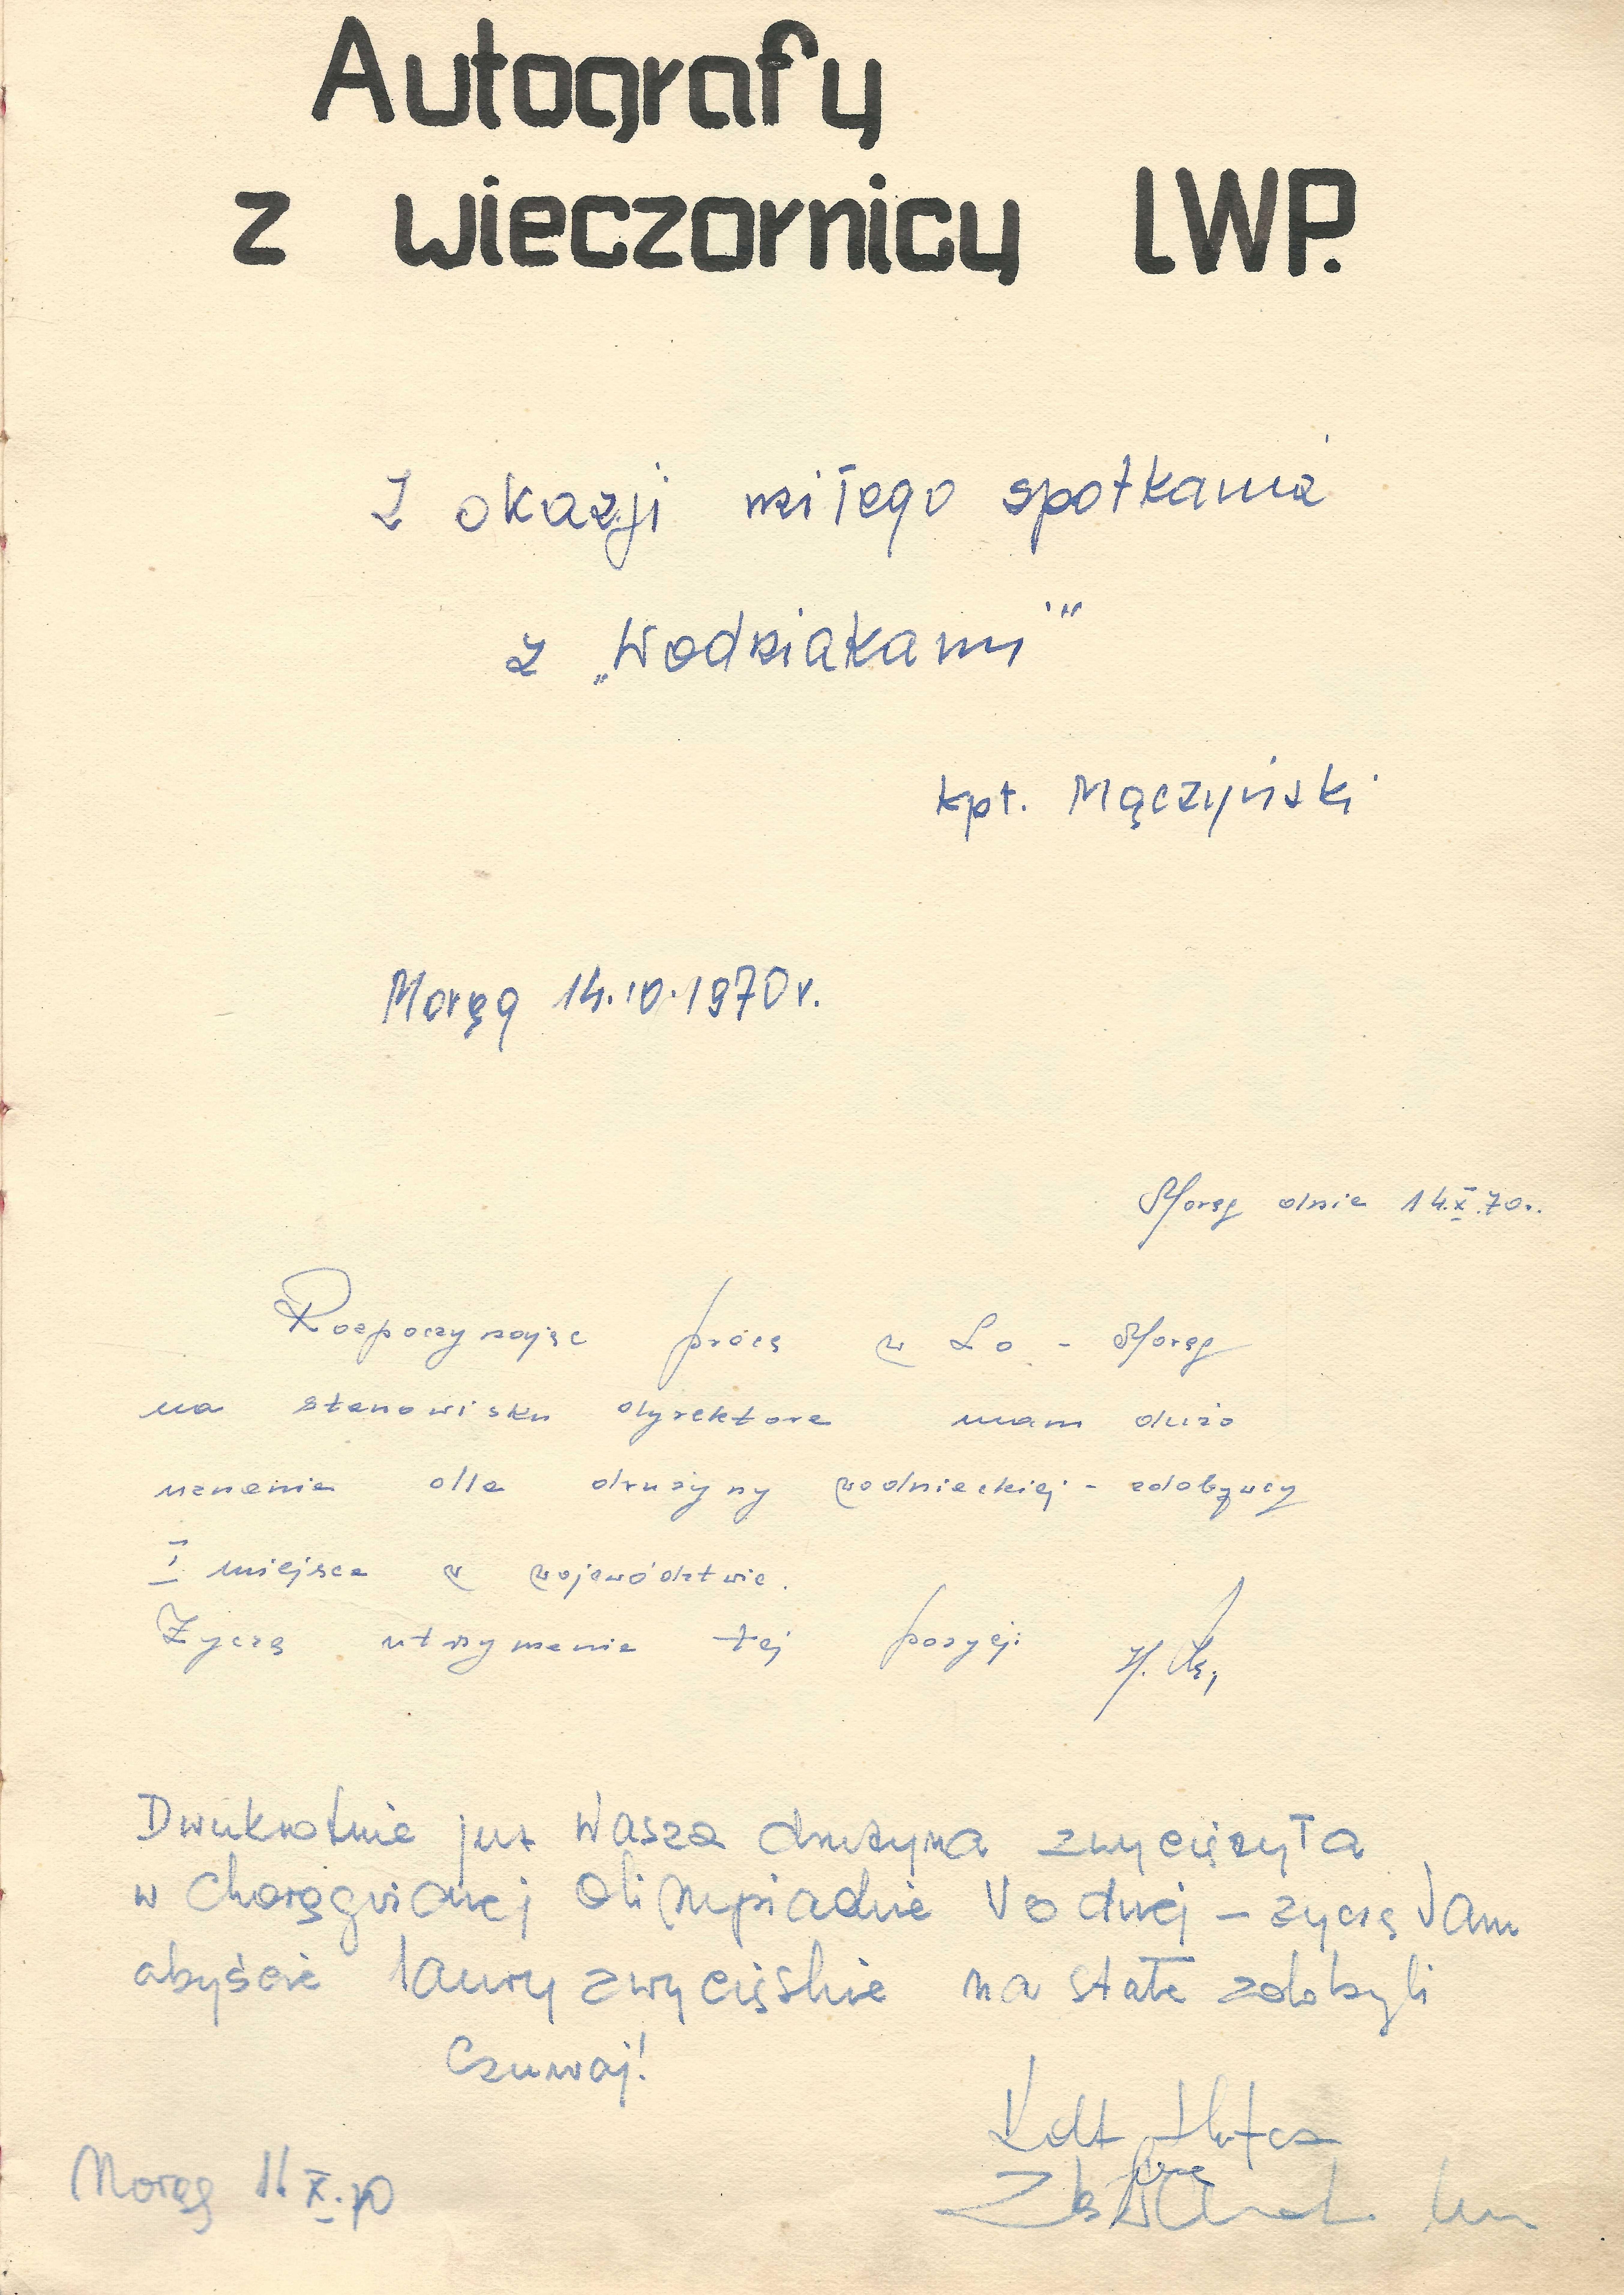 Autografy
z wieczornicy LWP.
Z okazji miłego spotkania
z „Wodziakami"
kpt. Mączyński
Morąg 14.10.1970 r.
Morąg dnia 14.X.70r.
Rozpoczynając pracę w Lo - Morąg
na stanowisku dyrektora mam dużo
uznania dla drużyny wodniackiej - zdobywcy
I miejsca w województwie.
Życzę utrzymania tej pozycji
Dwukrotnie już Wasza drużyna zwyciężyła
w Chorągwianej Olimpiadzie Wodnej - życzę Wam
abyście laury zwycięskie na stałe zdobyli
Czuwaj!
Morąg X.70